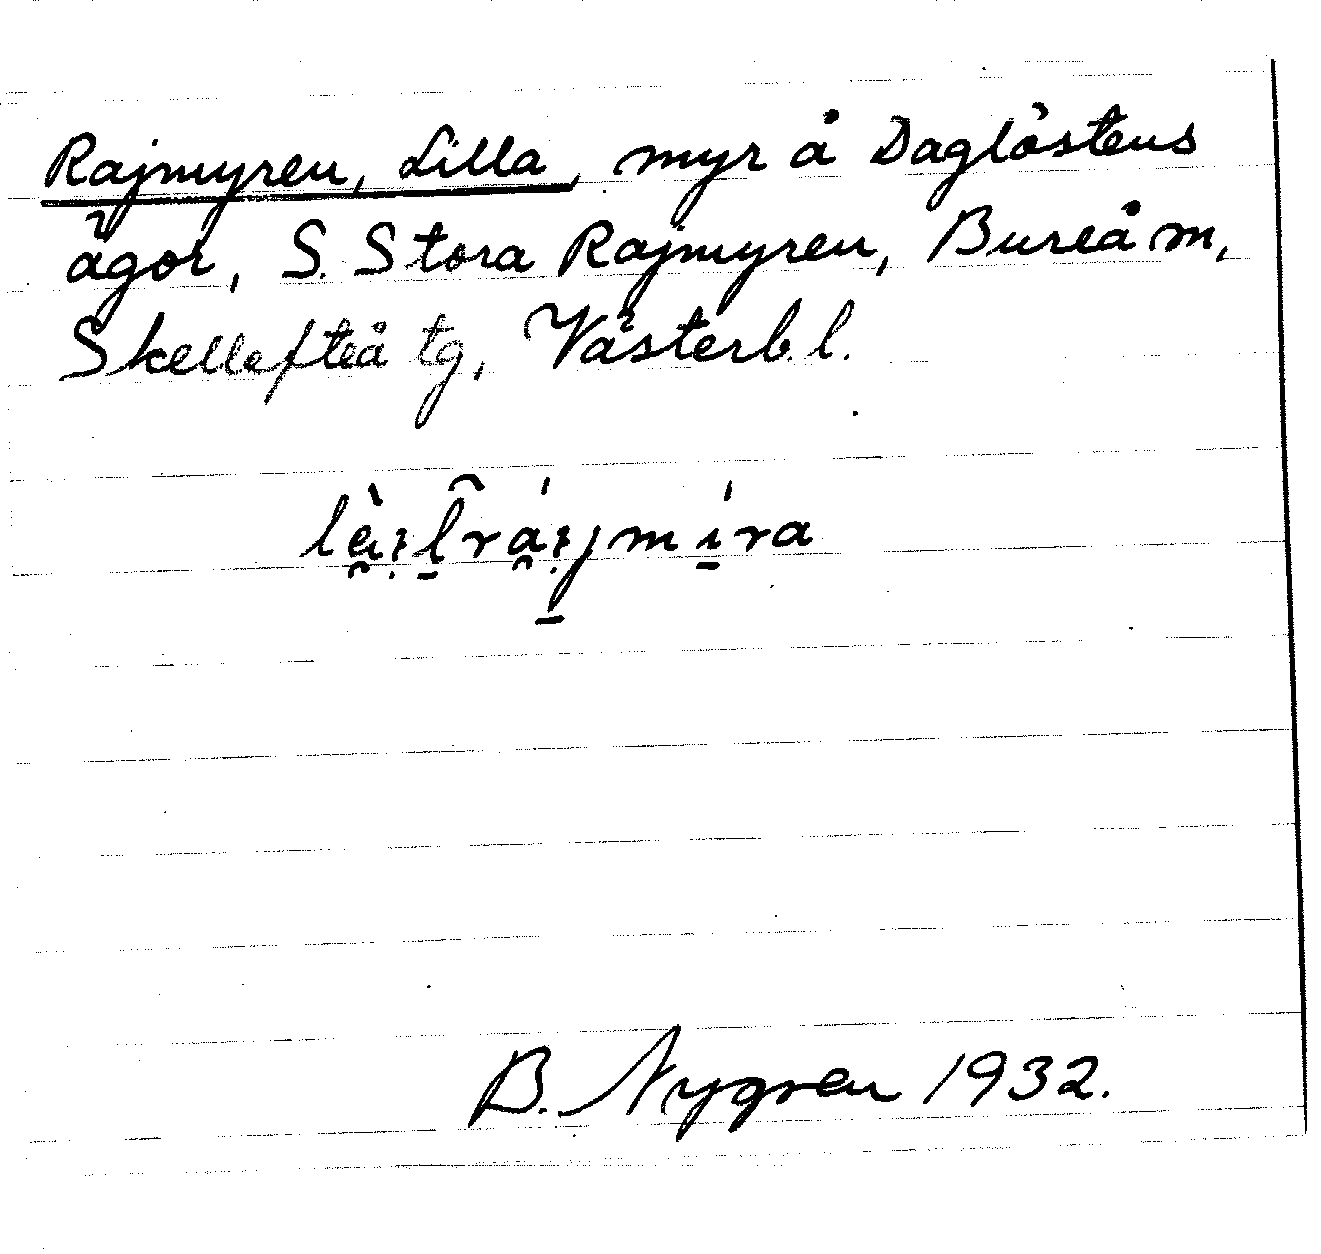 Rajmyren, Lilla, myr å Daglöstens
ägor, S. Stora Rajmyren, Bureå m,
Skellefteå tg, Västerb. l.
B. Nygren 1932.